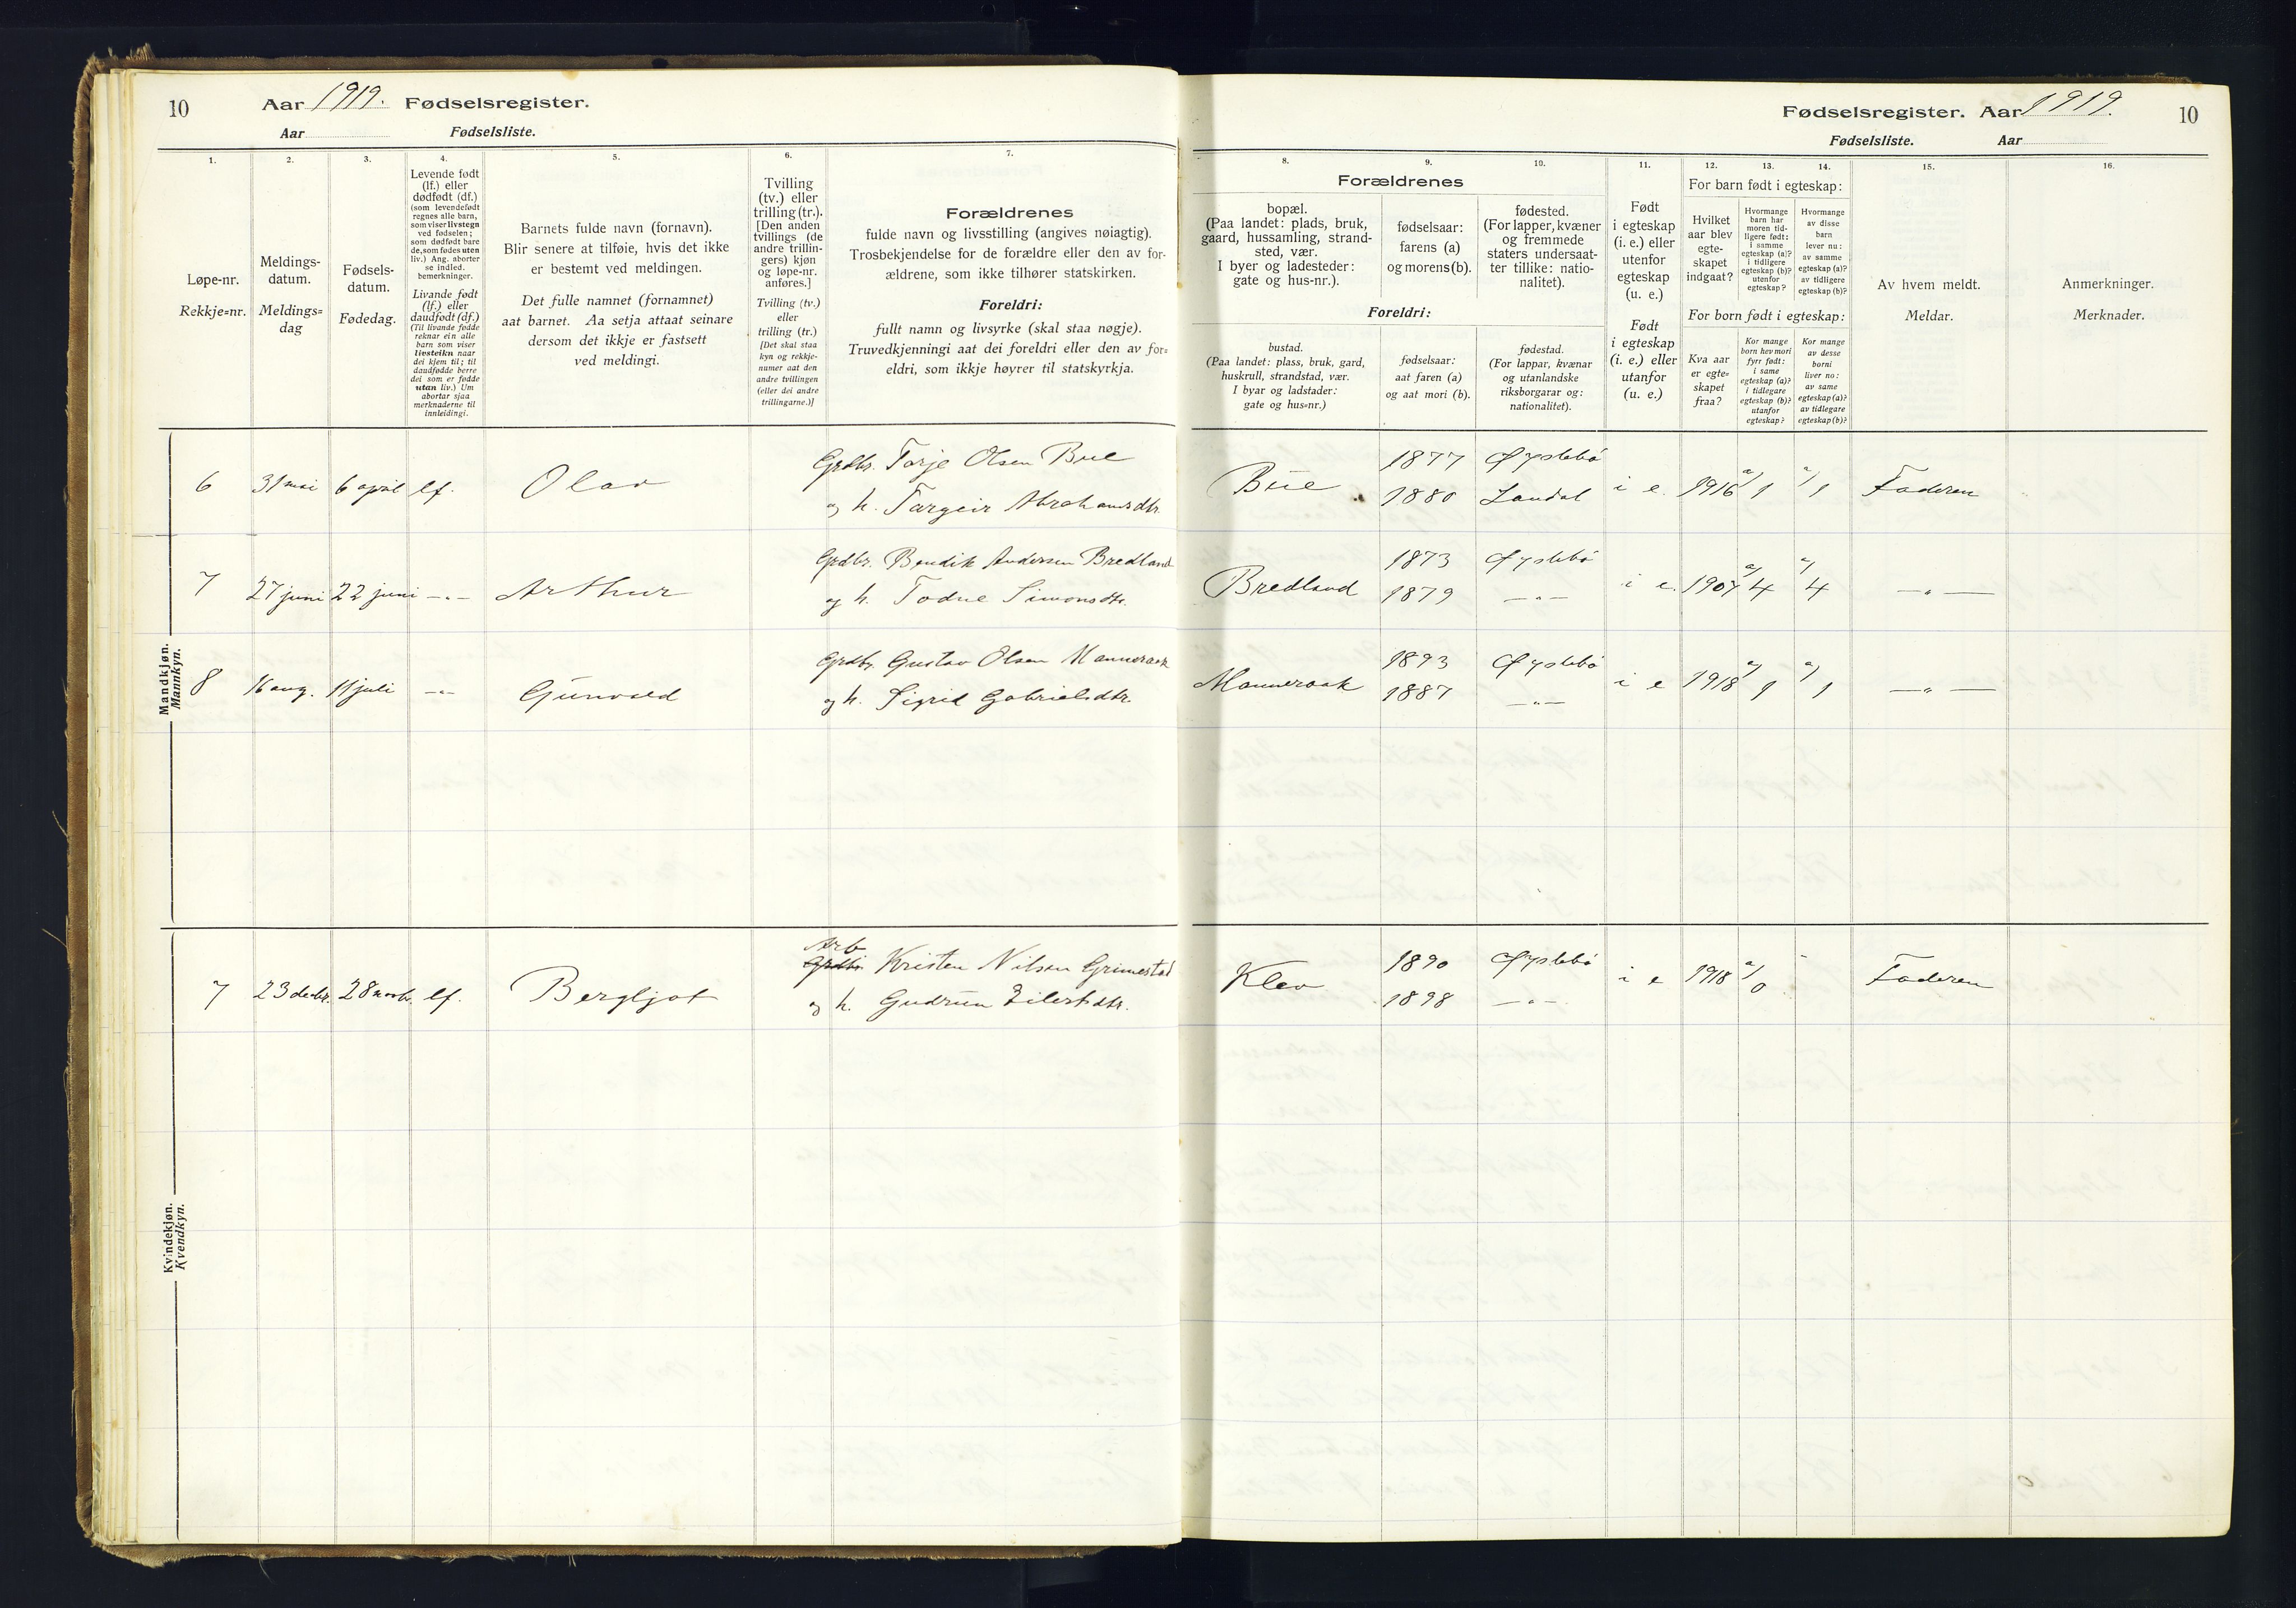 10 Aar 1919. Fødselsregister.
Aar Fødselsliste.
1. 2. 3. 4. 5. 6. 7.
Løpe-nr.
Rekkje=nr.
Meldings-
datum.
Meldings=
dag
Fødsels-
datum.
Fødedag.
Levende født
(lf.) eller
dødfødt (df.)
(som levendefødt
regnes alle barn,
som viser livstegn
ved fødselen;
som dødfødt bare
de, som fødes uten
liv.) Ang. aborter
se indled.
bemerkninger.
Livande født
(lf.) eller
daudfødt (df.)
(Til livande fødde
reknar ein alle
barn som viser
livsteikn naar
dei kjem til; til
daudfødde berre
dei som er fødde
utan liv.) Um
abortar sjaa
merknaderne til
innleidingi.
Barnets fulde navn (fornavn).
Blir senere at tilføie, hvis det ikke
er bestemt ved meldingen.
Det fulle namnet (fornamnet)
aat barnet. Aa setja attaat seinare
dersom det ikkje er fastsett
ved meldingi.
Tvilling
(tv.) eller
trilling (tr.).
[Den anden
tvillings (de
andre trillin-
gers) kjøn
og løpe-nr.
anføres.]
Tvilling (tv.)
eller
trilling (tr.)
[Det skal staa
kyn og rekkje-
numer aat den
andre tvillingen
(eller dei andre
trillingarne.)]
Forældrenes
fulde navn og livsstilling (angives nøiagtig).
Trosbekjendelse for de forældre eller den av for-
ældrene, som ikke tilhører statskirken.
Foreldri:
fullt namn og livsyrke (skal staa nøgje).
Truvedkjenningi aat dei foreldri eller den av for=
eldri, som ikkje høyrer til statskyrkja.
Mandkjøn.
Mannkyn.
6 31 mai 6 april lf. Olav Grdbr. Tarje Olsen Bue
og h. Targeir Abrahamsdtr.
7 27 juni 22 juni —"— Arthur Grdbr. Bendik Andersen Bredland
og h. Todne Simonsdtr.
8 16 aug. 11 juli —"— Gunvald Grdbr. Gustav Olsen Манneraak
og h. Sigrid Gabrielsdtr.
Kvindekjøn.
Kvendkyn.
Arb
7 23 decbr. 28 novbr. lf. Bergljot Grdbr. Kristen Nilsen Grimestad
og h. Gudrun Eilertsdtr.
Fødselsregister. Aar 1919. 10
Fødselsliste. Aar
8. 9. 10. 11. 12. 13. 14. 15. 16.
Forældrenes
bopæl.
(Paa landet: plads, bruk,
gaard, hussamling, strand-
sted, vær.
I byer og ladesteder:
gate og hus-nr.).
fødselsaar:
farens (a)
og morens (b).
fødested.
(For lapper, kvæner
og fremmede
staters undersaat-
ter tillike: natio-
nalitet).
Foreldri:
bustad.
(Paa landet: plass, bruk, gard,
huskrull, strandstad, vær.
I byar og ladstader:
gate og hus=nr.)
fødselsaar:
aat faren (a)
og aat mori (b).
fødestad.
(For lappar, kvænar
og utanlandske
riksborgarar og:
nationalitet).
Født
i egteskap
(i. e.) eller
utenfor
egteskap
(u. e.)
Født
i egteskap
(i. e.) eller
utanfor
(u. e.)
For barn født i egteskap:
Hvilket
aar blev
egte-
skapet
indgaat?
Hvormange
barn har
moren tid-
ligere født:
i samme
egteskap (a)?
i tidligere
egteskap (b)?
utenfor
egteskap?
Hvormange
av disse
barn
lever nu:
av samme
egteskap (a)?
av tidligere
egteskap (b)?
For born født i egteskap:
Kva aar
er egte=
skapet
fraa?
Kor mange
born hev mori
fyrr født:
i same
egteskap (a)?
i tidlegare
egteskap (b)?
utanfor
egteskap?
Kor mange
av desse
borni
liver no:
av same
egteskap (a)?
av tidlegare
egteskap (b)?
Av hvem meldt.
Meldar.
Anmerkninger.
Merknader.
Bue 1877 Øyslebø i e. 1916 a/1 a/1 Faderen
1880 Laudal
Bredland 1873 Øyslebø i e. 1907 a/4 a/4 —"—
1879 —"—
Manneraak 1893 Øyslebø i e 1918 a/1 a/1 —"—
1887 —"—
Klev 1890 Øyslebø i e 1918 a/0 - Faderen
1898 —"—